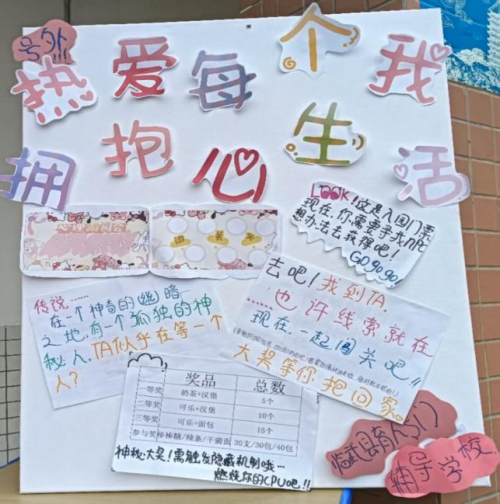 号外
热爱每个我
拥抱心生活
LOOK!这是入园门票
现在,你需要寻找NPC
想办法去获得吧!
GO gogo!
传说……
在一个神奇的幽暗
之地,有一个孤独的神
秘人.TA似乎在等一个
人?
去吧!找到TA.
……也许线索就在
现在.一起闯关吧!!
大奖等你把回家
奖品 总数
一等奖 奶茶+汉堡 5个
二等奖 可乐+汉堡 10个
三等奖 可乐+面包 15个
参与奖 棒棒糖/辣条/干脆面 30支/30包/40包
神秘大奖!需触发隐藏机制哦…
燃烧你的CPU吧!!
临武县有人
辅导学校